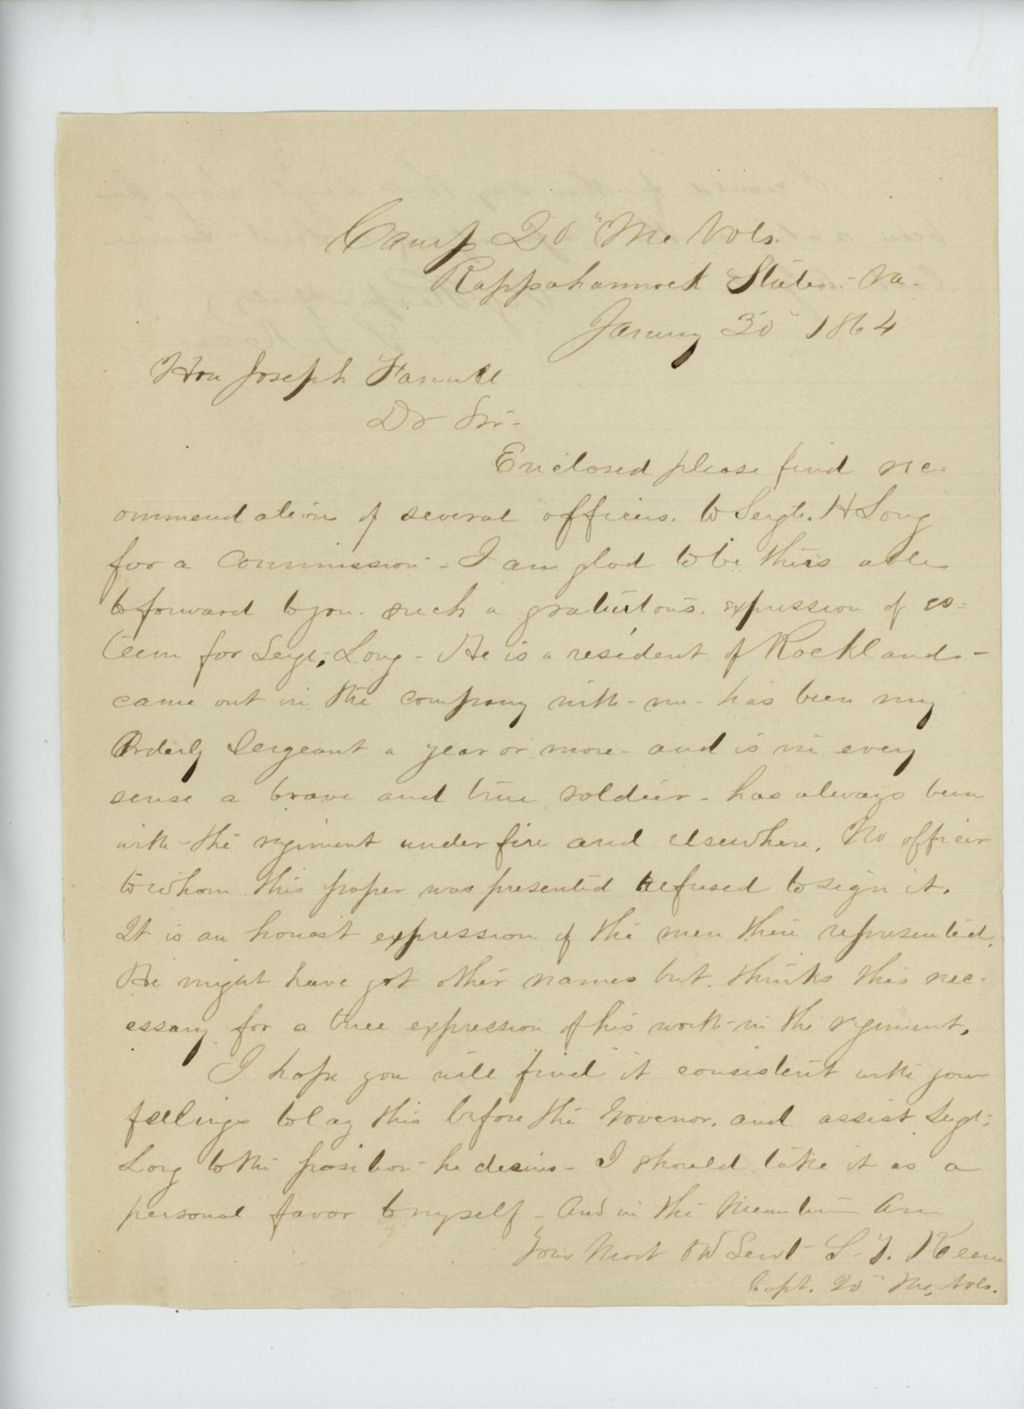 Camp 20" Me Vols.
Rappahannock Station Va.
January 30" 1864
Hon Joseph Farwell
Dr Sir-
Enclosed please find rec-
ommendations of several officers. to Sergt. H Long
for a commission - I am glad to be thus able
to forward to you such a gratuitous expression of es-
teem for Sergt, Long - He is a resident of Rockland -
came out in the company with me - has been my
Orderly Sergeant a year or more - and is in every
sense a brave and true soldier - has always been
with the regiment under fire and elsewhere. No officer
to whom this paper was presented refused to sign it.
It is an honest expression of the men there represented.
He might have got other names but thinks this nec-
essary for a true expression of his worth in the regiment.
I hope you will find it consistent with your
feelings to lay this before the Govenor, and assist Sergt-
Long to the position he desires - I should take it as a
personal favor to myself - And in the meantime Am
Your Most Obd Servt - S. T. Keene
Capt. 20" Me, Vols.